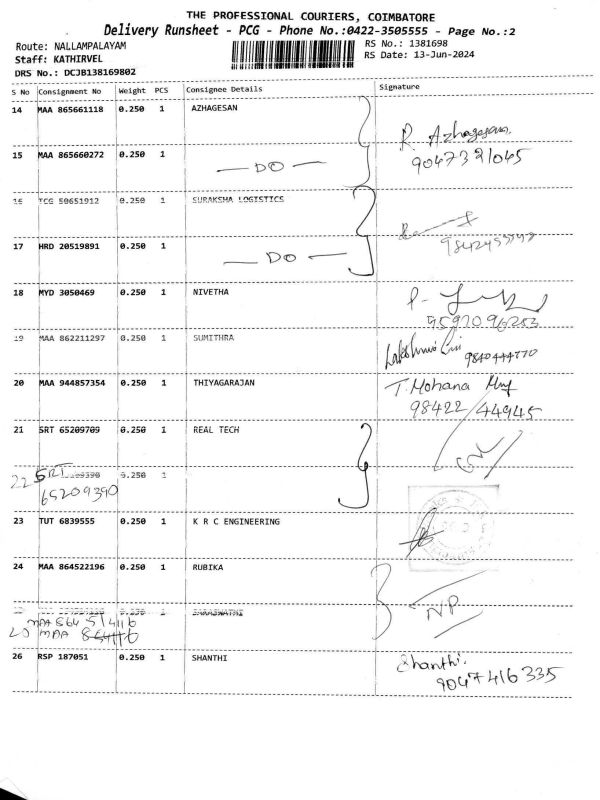 THE PROFESSIONAL COURIERS, COIMBATORE
Delivery Runsheet - PCG - Phone No.:0422-3505555 - Page No.:2
Route: NALLAMPALAYAM RS No.: 1381698
Staff: KATHIRVEL RS Date: 13-Jun-2024
DRS No.: DCJB138169802
S No Consignment No Weight PCS Consignee Details Signature
14 MAA 865661118 0.250 1 AZHAGESAN
R. Azhagesan
15 MAA 865660272 0.250 1 9047321045
— DO —
16 TCG 50651912 0.250 1 SURAKSHA LOGISTICS
17 HRD 20519891 0.250 1
— DO —
18 MYD 3050469 0.250 1 NIVETHA
9597096253
19 MAA 862211297 0.250 1 SUMITHRA
9840444770
20 MAA 944857354 0.250 1 THIYAGARAJAN T. Mohana
98422 44945
21 SRT 65209709 0.250 1 REAL TECH
22 SRT 0.250 1
65209390
23 TUT 6839555 0.250 1 K R C ENGINEERING
24 MAA 864522196 0.250 1 RUBIKA
NP
0.250 1 SARASWATHI
MAA 864514116
MAA
26 RSP 187051 0.250 1 SHANTHI Shanthi.
9047416335